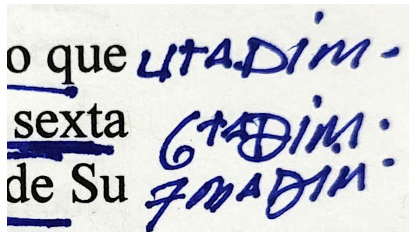 o que 4TA.DiM.
sexta 6TADiM.
de Su 7MADiM